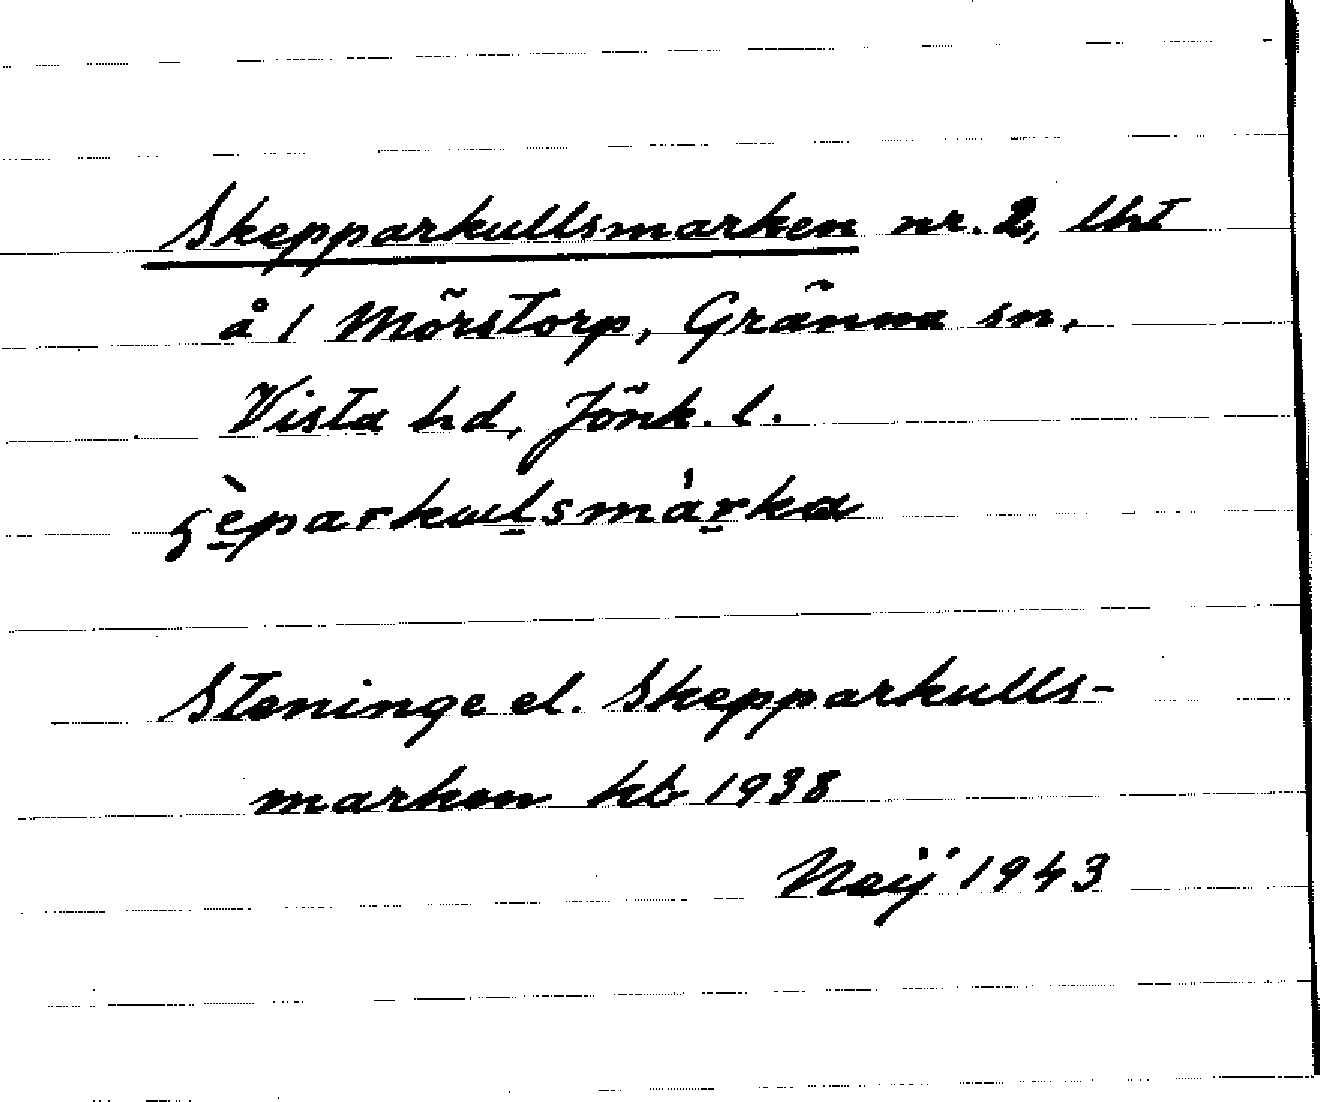 Skepparkullsmarken nr. 2, lht
å 1 Mörstorp, Gränna sn.
Vista hd, Jönk. l.
Steninge el. Skepparkulls-
marken kb 1938
Neij 1943